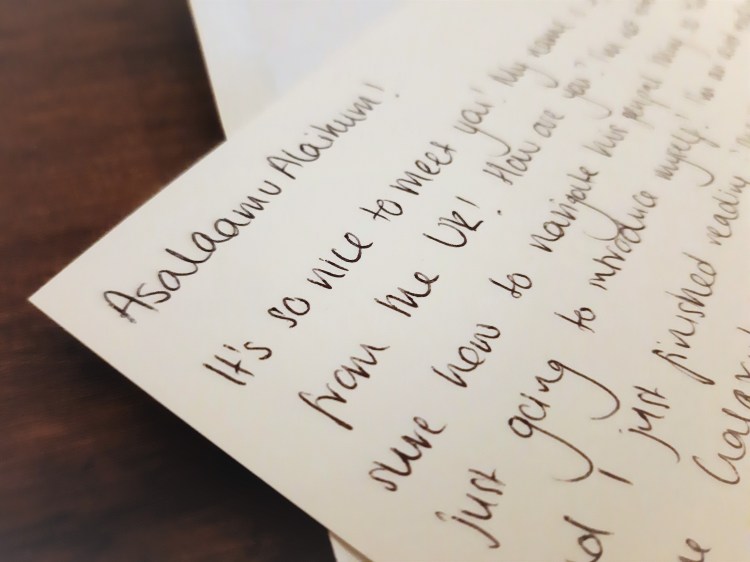 Asalaamu Alaikum!
It's so nice to meet you! My name
from the UK! How are you? I'm so
sure how to navigate this penpal thing so
just going to introduce myself! I'm an
and I just finished reading
Galax